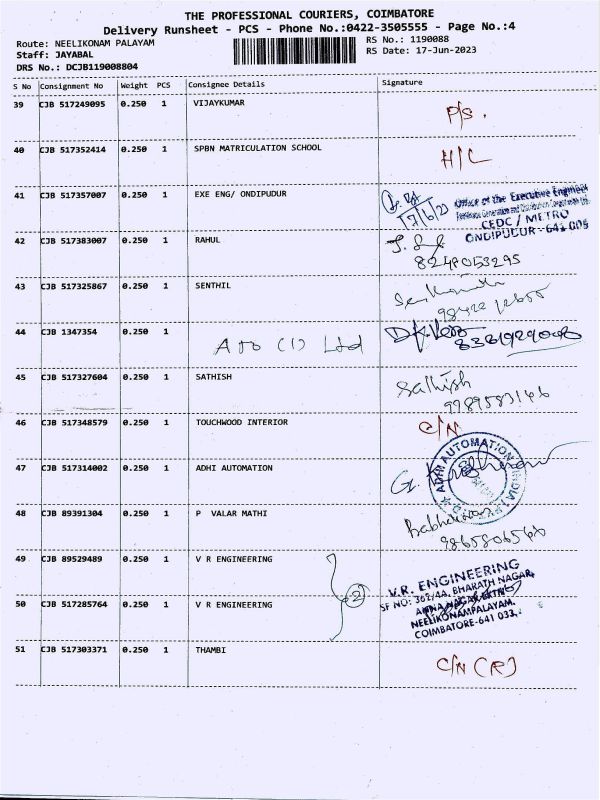 THE PROFESSIONAL COURIERS, COIMBATORE
Delivery Runsheet - PCS - Phone No.:0422-3505555 - Page No.:4
Route: NEELIKONAM PALAYAM
RS No.: 1190088
Staff: JAYABAL
RS Date: 17-Jun-2023
DRS No.: DCJB119008804
S No Consignment No Weight PCS Consignee Details Signature
39 CJB 517249095 0.250 1 VIJAYKUMAR P/S.
40 CJB 517352414 0.250 1 SPBN MATRICULATION SCHOOL H/C
41 CJB 517357007 0.250 1 EXE ENG/ ONDIPUDUR
17/6/23
Office of the Executive Engineer
CEDC / METRO
ONDIPUDUR - 641 005
42 CJB 517383007 0.250 1 RAHUL
8248053295
43 CJB 517325867 0.250 1 SENTHIL
44 CJB 1347354 0.250 1
45 CJB 517327604 0.250 1 SATHISH Sathish
46 CJB 517348579 0.250 1 TOUCHWOOD INTERIOR C/N
47 CJB 517314002 0.250 1 ADHI AUTOMATION
ADHI AUTOMATION
48 CJB 89391304 0.250 1 P VALAR MATHI
49 CJB 89529489 0.250 1 V R ENGINEERING
2
50 CJB 517285764 0.250 1 V R ENGINEERING
V.R. ENGINEERING
SF NO: 302/4A, BHARATH NAGAR,
NEELIKONAMPALAYAM,
COIMBATORE-641 033.
51 CJB 517303371 0.250 1 THAMBI C/N (R)